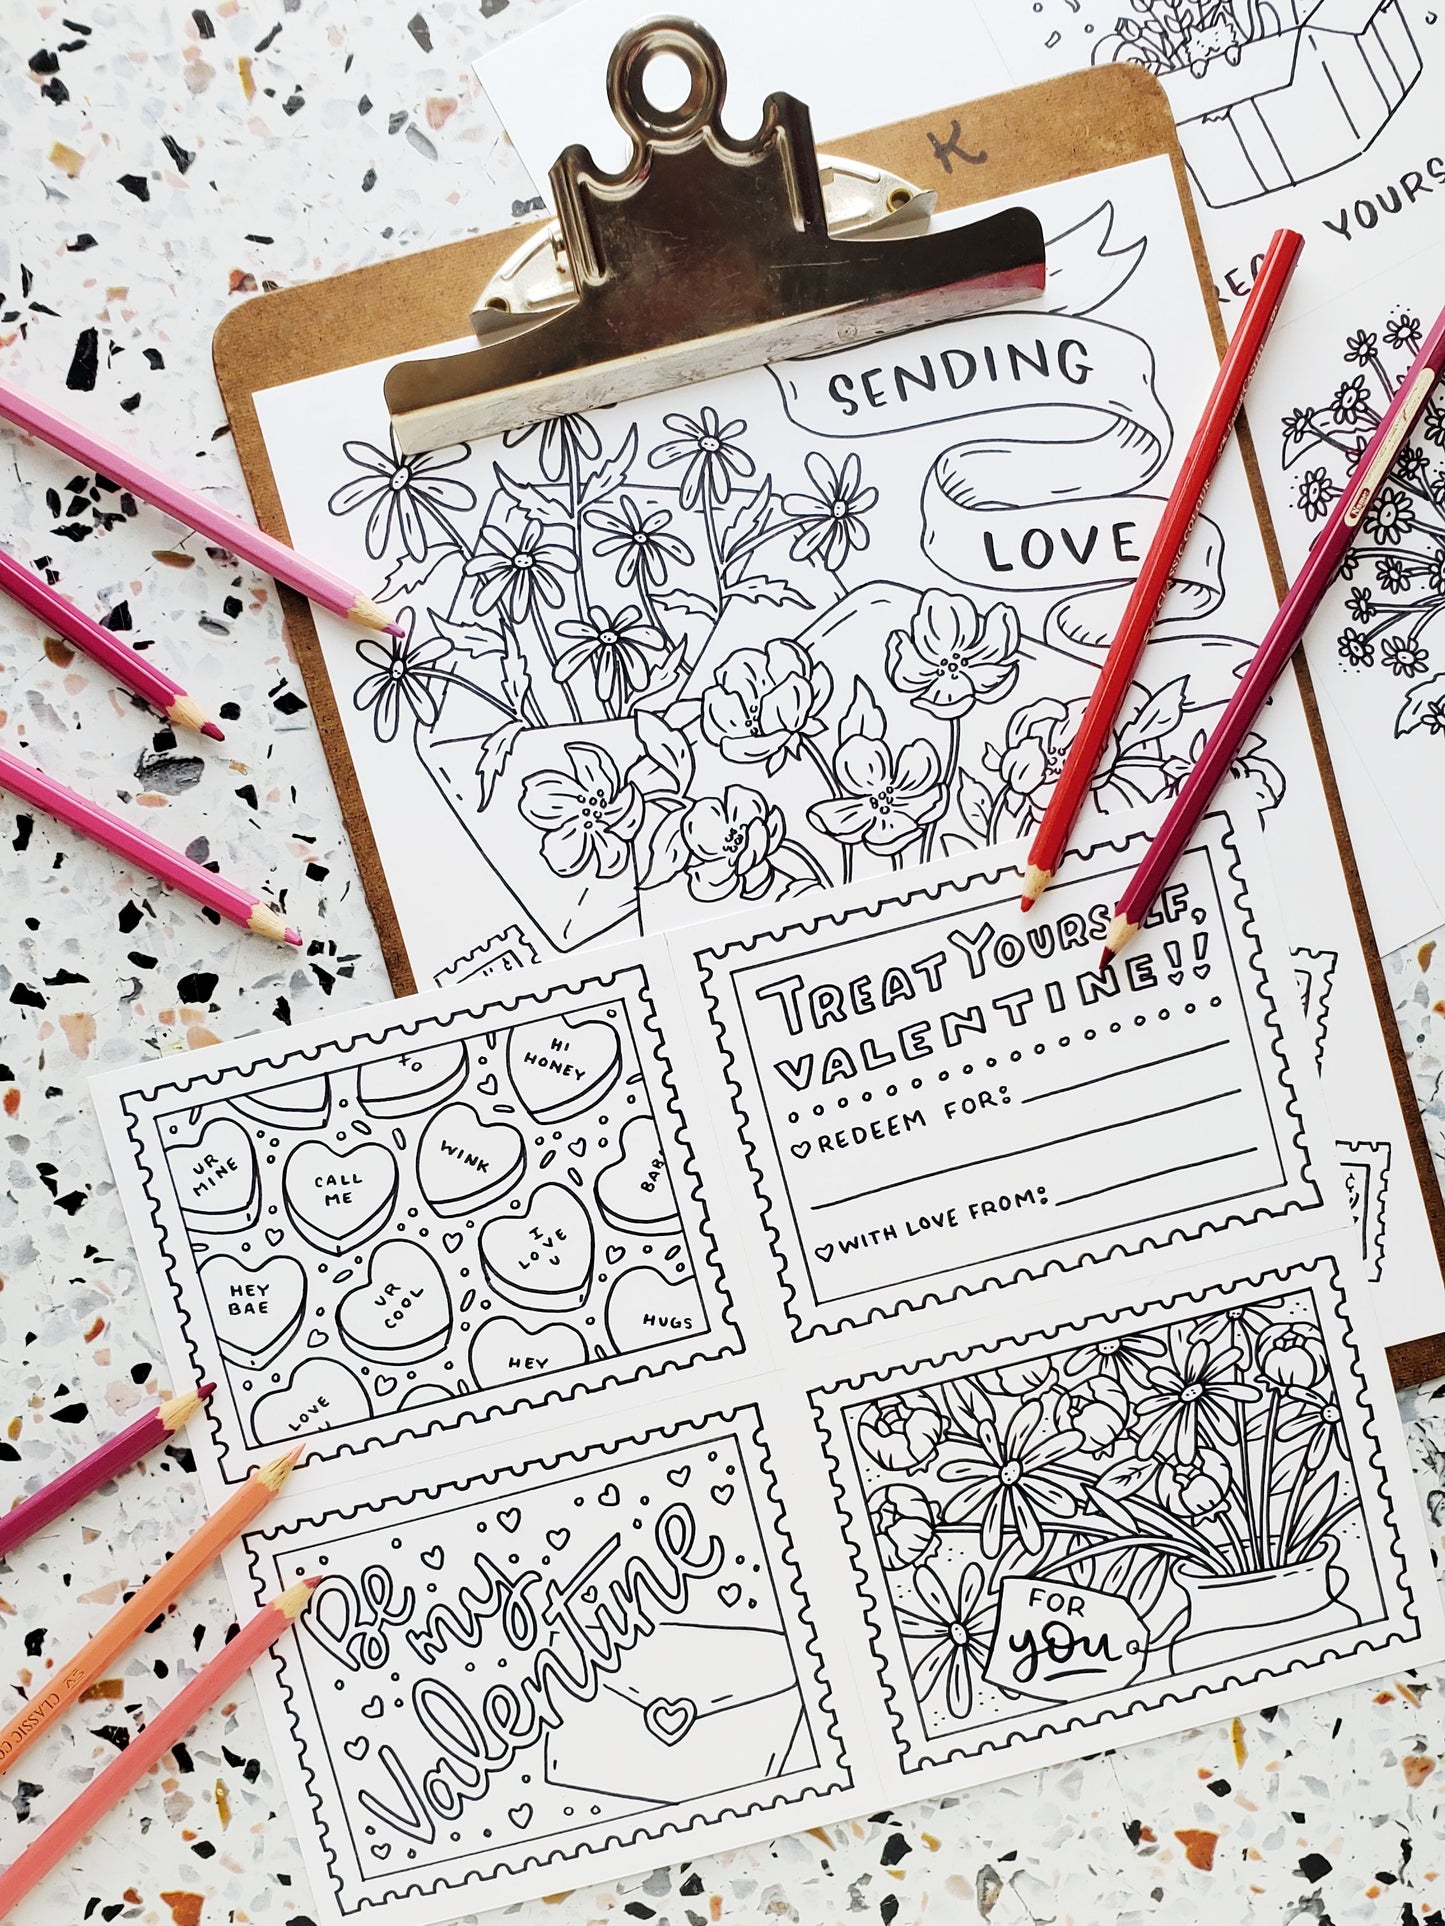 K
YOURS
SENDING
LOVE
TREAT YOURSELF,
VALENTINE!!
REDEEM FOR:
WITH LOVE FROM:
XO
HI
HONEY
UR
MINE
CALL
ME
WINK
I VE
LO U
HEY
BAE
UR
COOL
HUGS
HEY
LOVE
Be
my
Valentine
FOR
you
CLASSIC CO